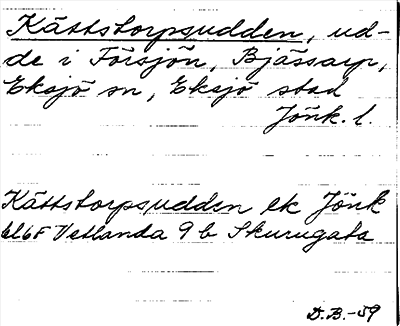 Kättstorpsudden, ud-
de i Försjön, Bjässarp,
Eksjö sn, Eksjö stad
Jönk. l.
Kättstorpsudden ek Jönk
6F Vetlanda 9 b Skurugata
D.B.-59